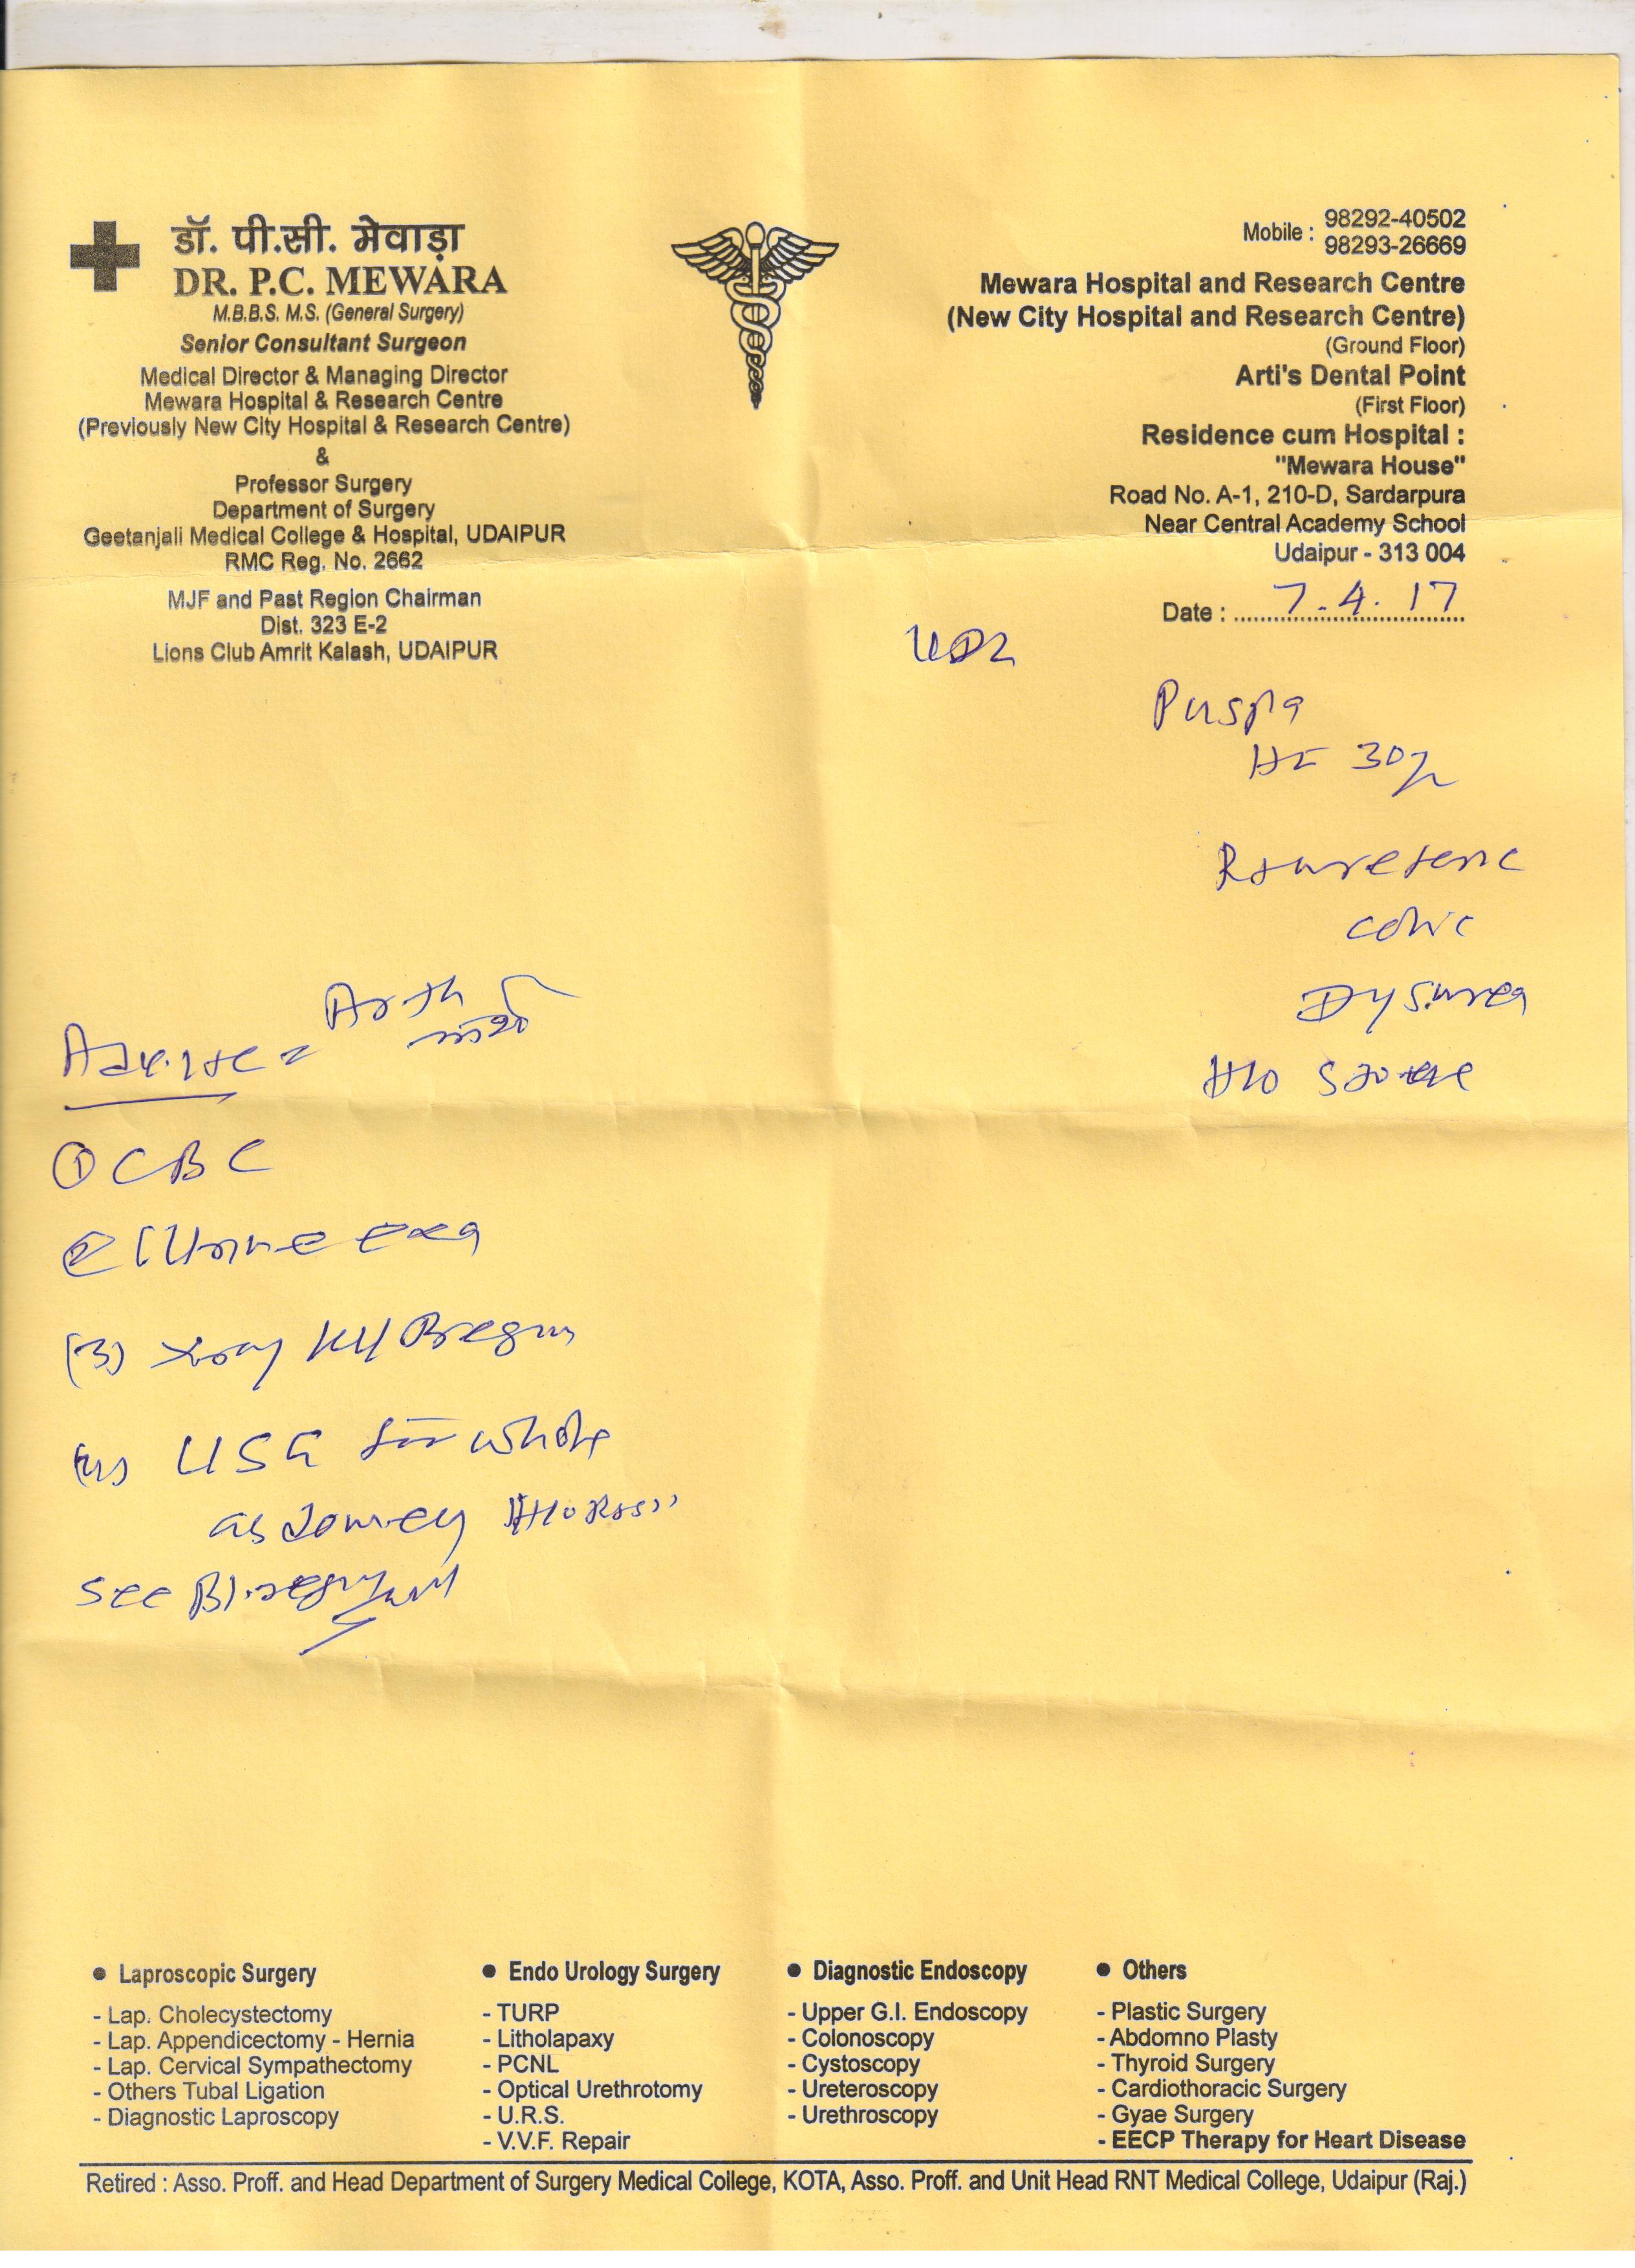 डॉ. पी.सी. मेवाड़ा
DR. P.C. MEWARA
M.B.B.S. M.S. (General Surgery)
Senior Consultant Surgeon
Medical Director & Managing Director
Mewara Hospital & Research Centre
(Previously New City Hospital & Research Centre)
&
Professor Surgery
Department of Surgery
Geetanjali Medical College & Hospital, UDAIPUR
RMC Reg. No. 2662
MJF and Past Region Chairman
Dist. 323 E-2
Lions Club Amrit Kalash, UDAIPUR
Mobile : 98292-40502
98293-26669
Mewara Hospital and Research Centre
(New City Hospital and Research Centre)
(Ground Floor)
Arti's Dental Point
(First Floor)
Residence cum Hospital :
"Mewara House"
Road No. A-1, 210-D, Sardarpura
Near Central Academy School
Udaipur - 313 004
Date : 7.4.17
Puspa
30
colic
Dysurea
H/o Stone
① CBC
② Urine exa
(3) Xray KUB region
(4) USG for whole
see
● Laproscopic Surgery
- Lap. Cholecystectomy
- Lap. Appendicectomy - Hernia
- Lap. Cervical Sympathectomy
- Others Tubal Ligation
- Diagnostic Laproscopy
● Endo Urology Surgery
- TURP
- Litholapaxy
- PCNL
- Optical Urethrotomy
- U.R.S.
- V.V.F. Repair
● Diagnostic Endoscopy
- Upper G.I. Endoscopy
- Colonoscopy
- Cystoscopy
- Ureteroscopy
- Urethroscopy
● Others
- Plastic Surgery
- Abdomno Plasty
- Thyroid Surgery
- Cardiothoracic Surgery
- Gyae Surgery
- EECP Therapy for Heart Disease
Retired : Asso. Proff. and Head Department of Surgery Medical College, KOTA, Asso. Proff. and Unit Head RNT Medical College, Udaipur (Raj.)